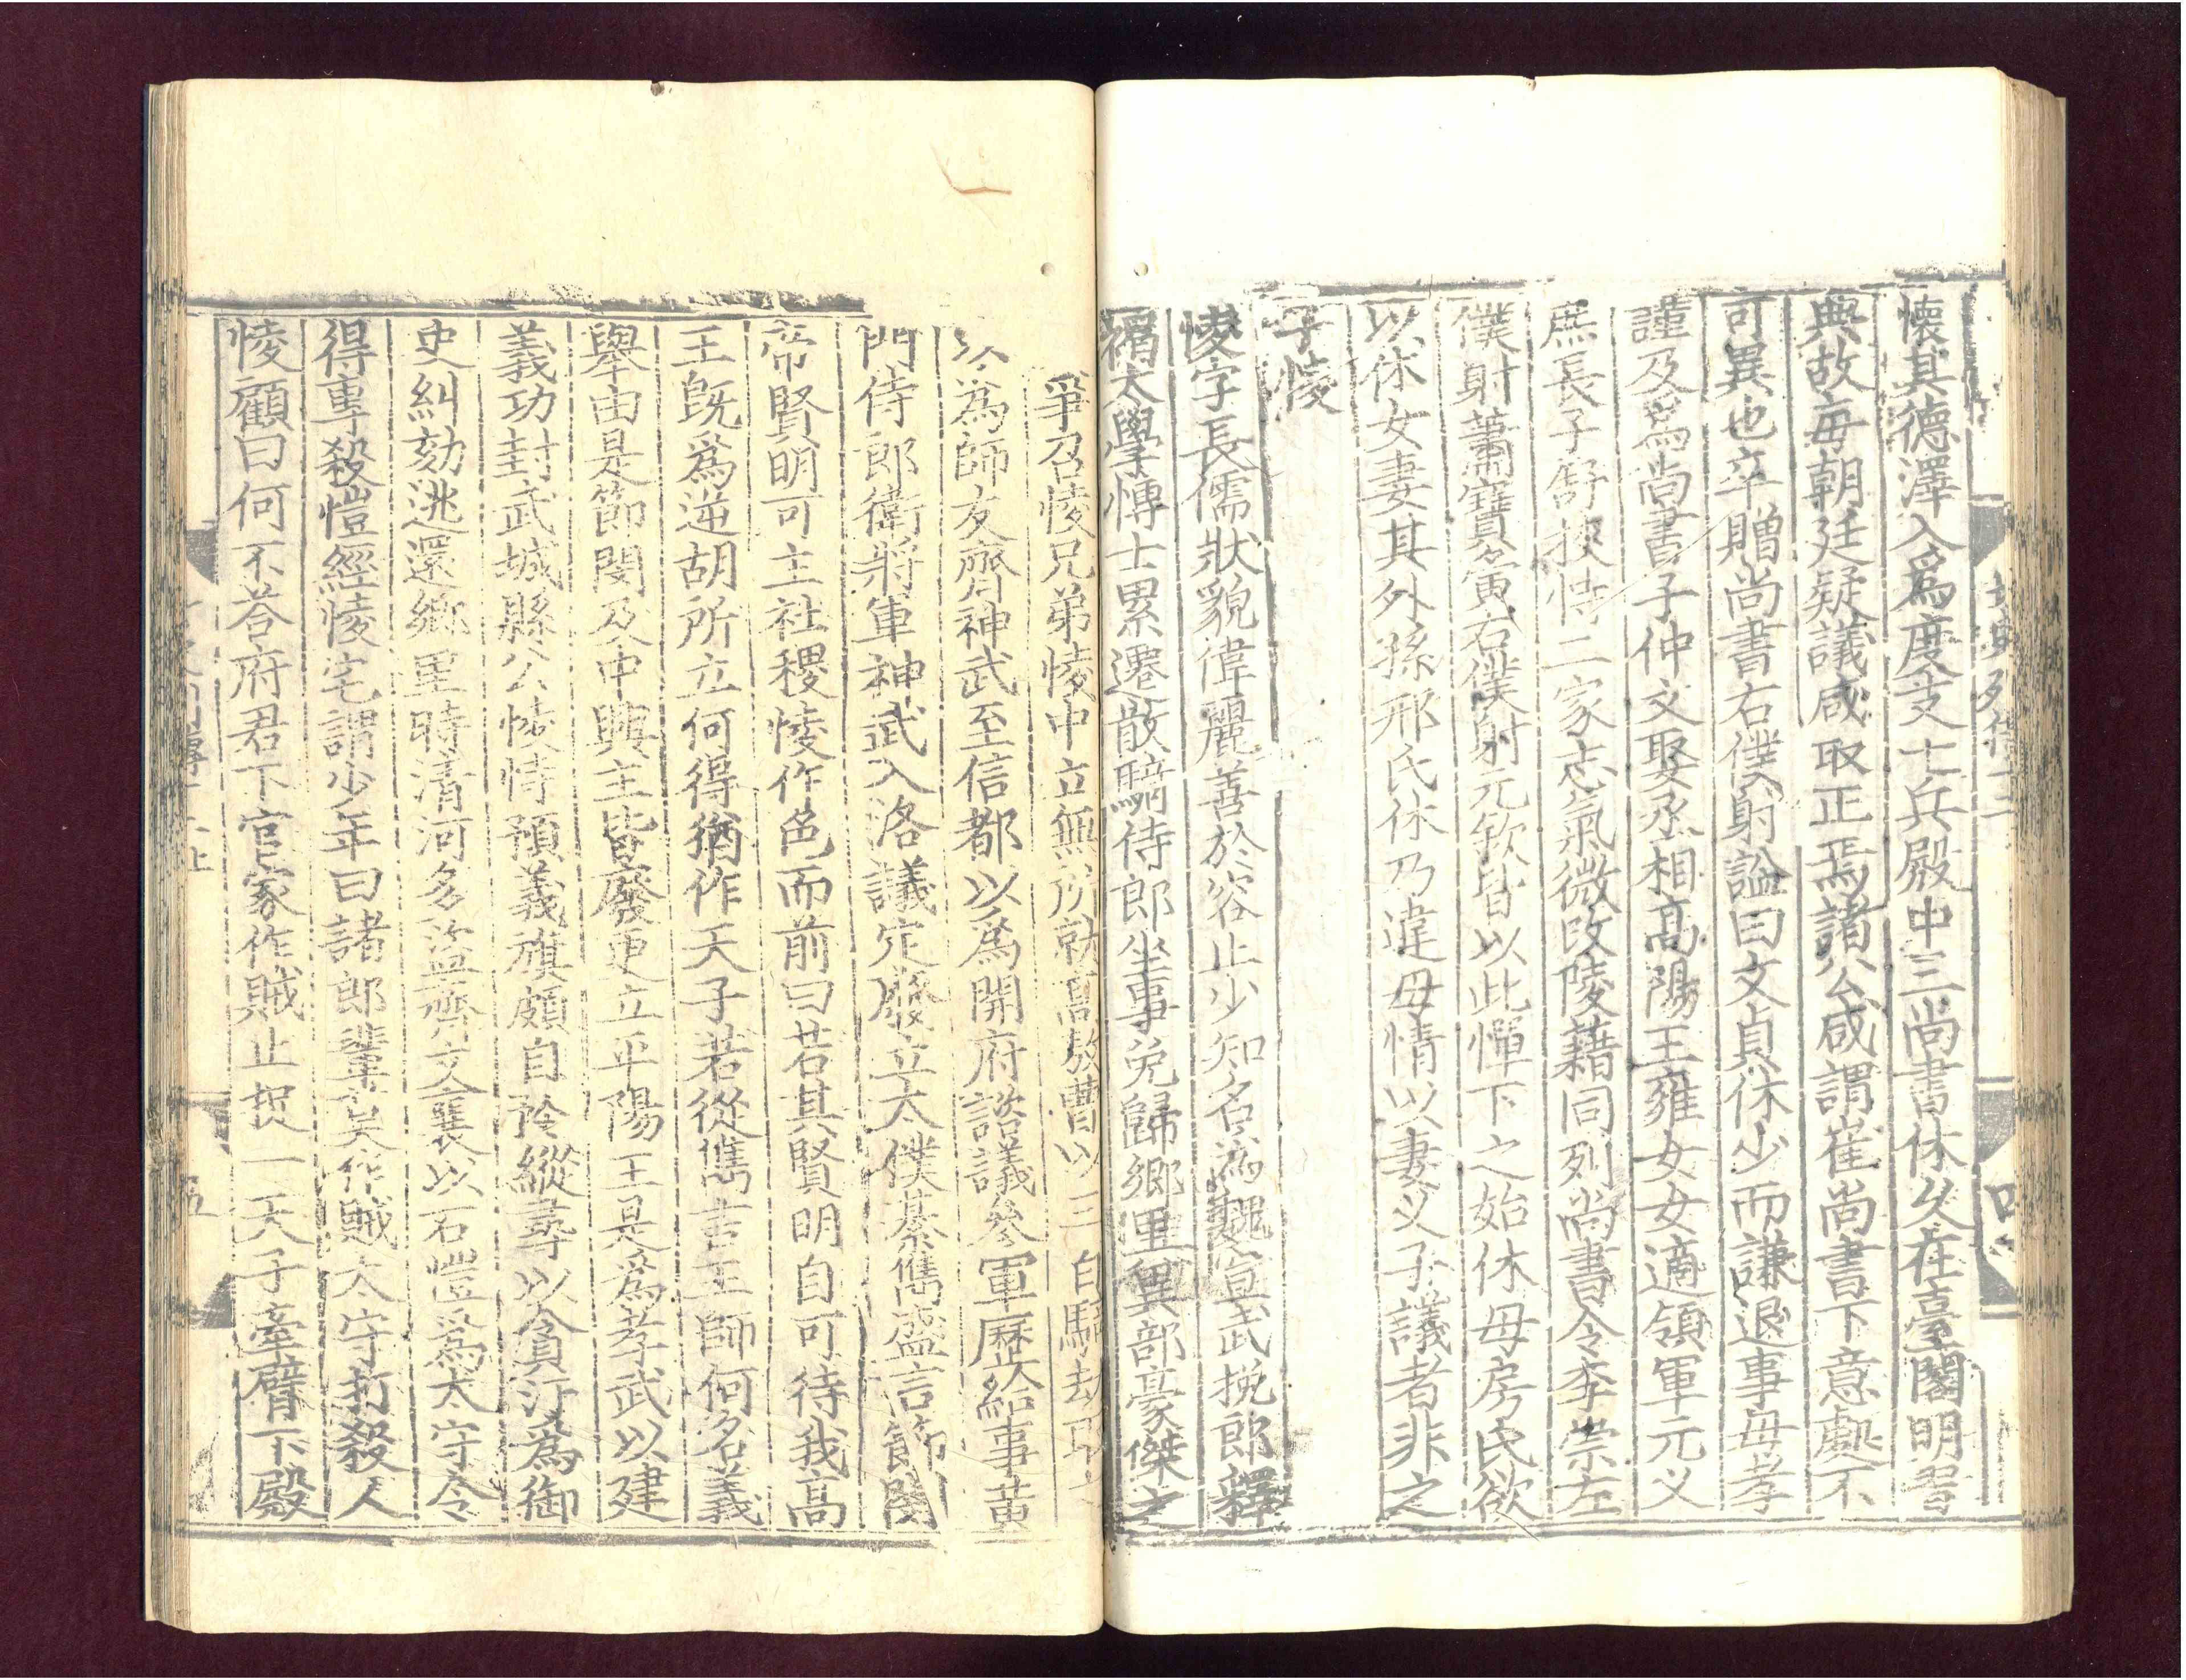 懐其德澤入爲度支七兵殿中三尚書休久在臺閣明習
典故每朝廷疑議咸取正焉諸公咸謂崔尚書下意處不
可異也卒贈尚書右僕射謚曰文貞休少而謙退事母孝
謹及爲尚書子仲文娶丞相高陽王雍女女適領軍元乂
庶長子舒挾恃二家志氣微改陵藉同列尚書令李崇左
僕射蕭寶夤右僕射元欽皆以此憚下之始休母房氏欲
以休女妻其外孫邢氏休乃違母情以妻乂子議者非之
子㥄
㥄字長儒狀貌偉麗善於容止少知名爲魏宣武挽郎釋
褐太學愽士累遷散騎侍郎坐事免歸鄉里冀部豪傑之
爭召㥄兄弟㥄中立無所就高敖曹以三百騎劫取之
以爲師友齊神武至信都以爲開府諮議參軍歷給事黃
門侍郎衛將軍神武入洛議定廢立太僕綦儁盛言節閔
帝賢明可主社稷㥄作色而前曰若其賢明自可待我高
王旣爲逆胡所立何得猶作天子若從儁言王師何名義
舉由是節閔及中興主皆廢更立平陽王是爲孝武以建
義功封武城縣公㥄恃預義旗頗自矜縱尋以貪汙爲御
史糾劾逃還鄉里時清河多盜齊文襄以石愷爲太守令
得專殺愷經㥄宅謂少年曰諸郎輩莫作賊太守打殺人
㥄顧曰何不荅府君下官家作賊止捉一天子牽臂下殿